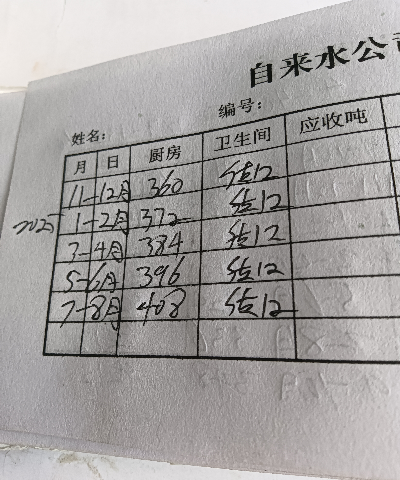 自来水公司
编号:
姓名:
月 日 厨房 卫生间 应收吨
11-12月 360 结12
2025 1-2月 372 结12
3-4月 384 结12
5-6月 396 结12
7-8月 408 结12